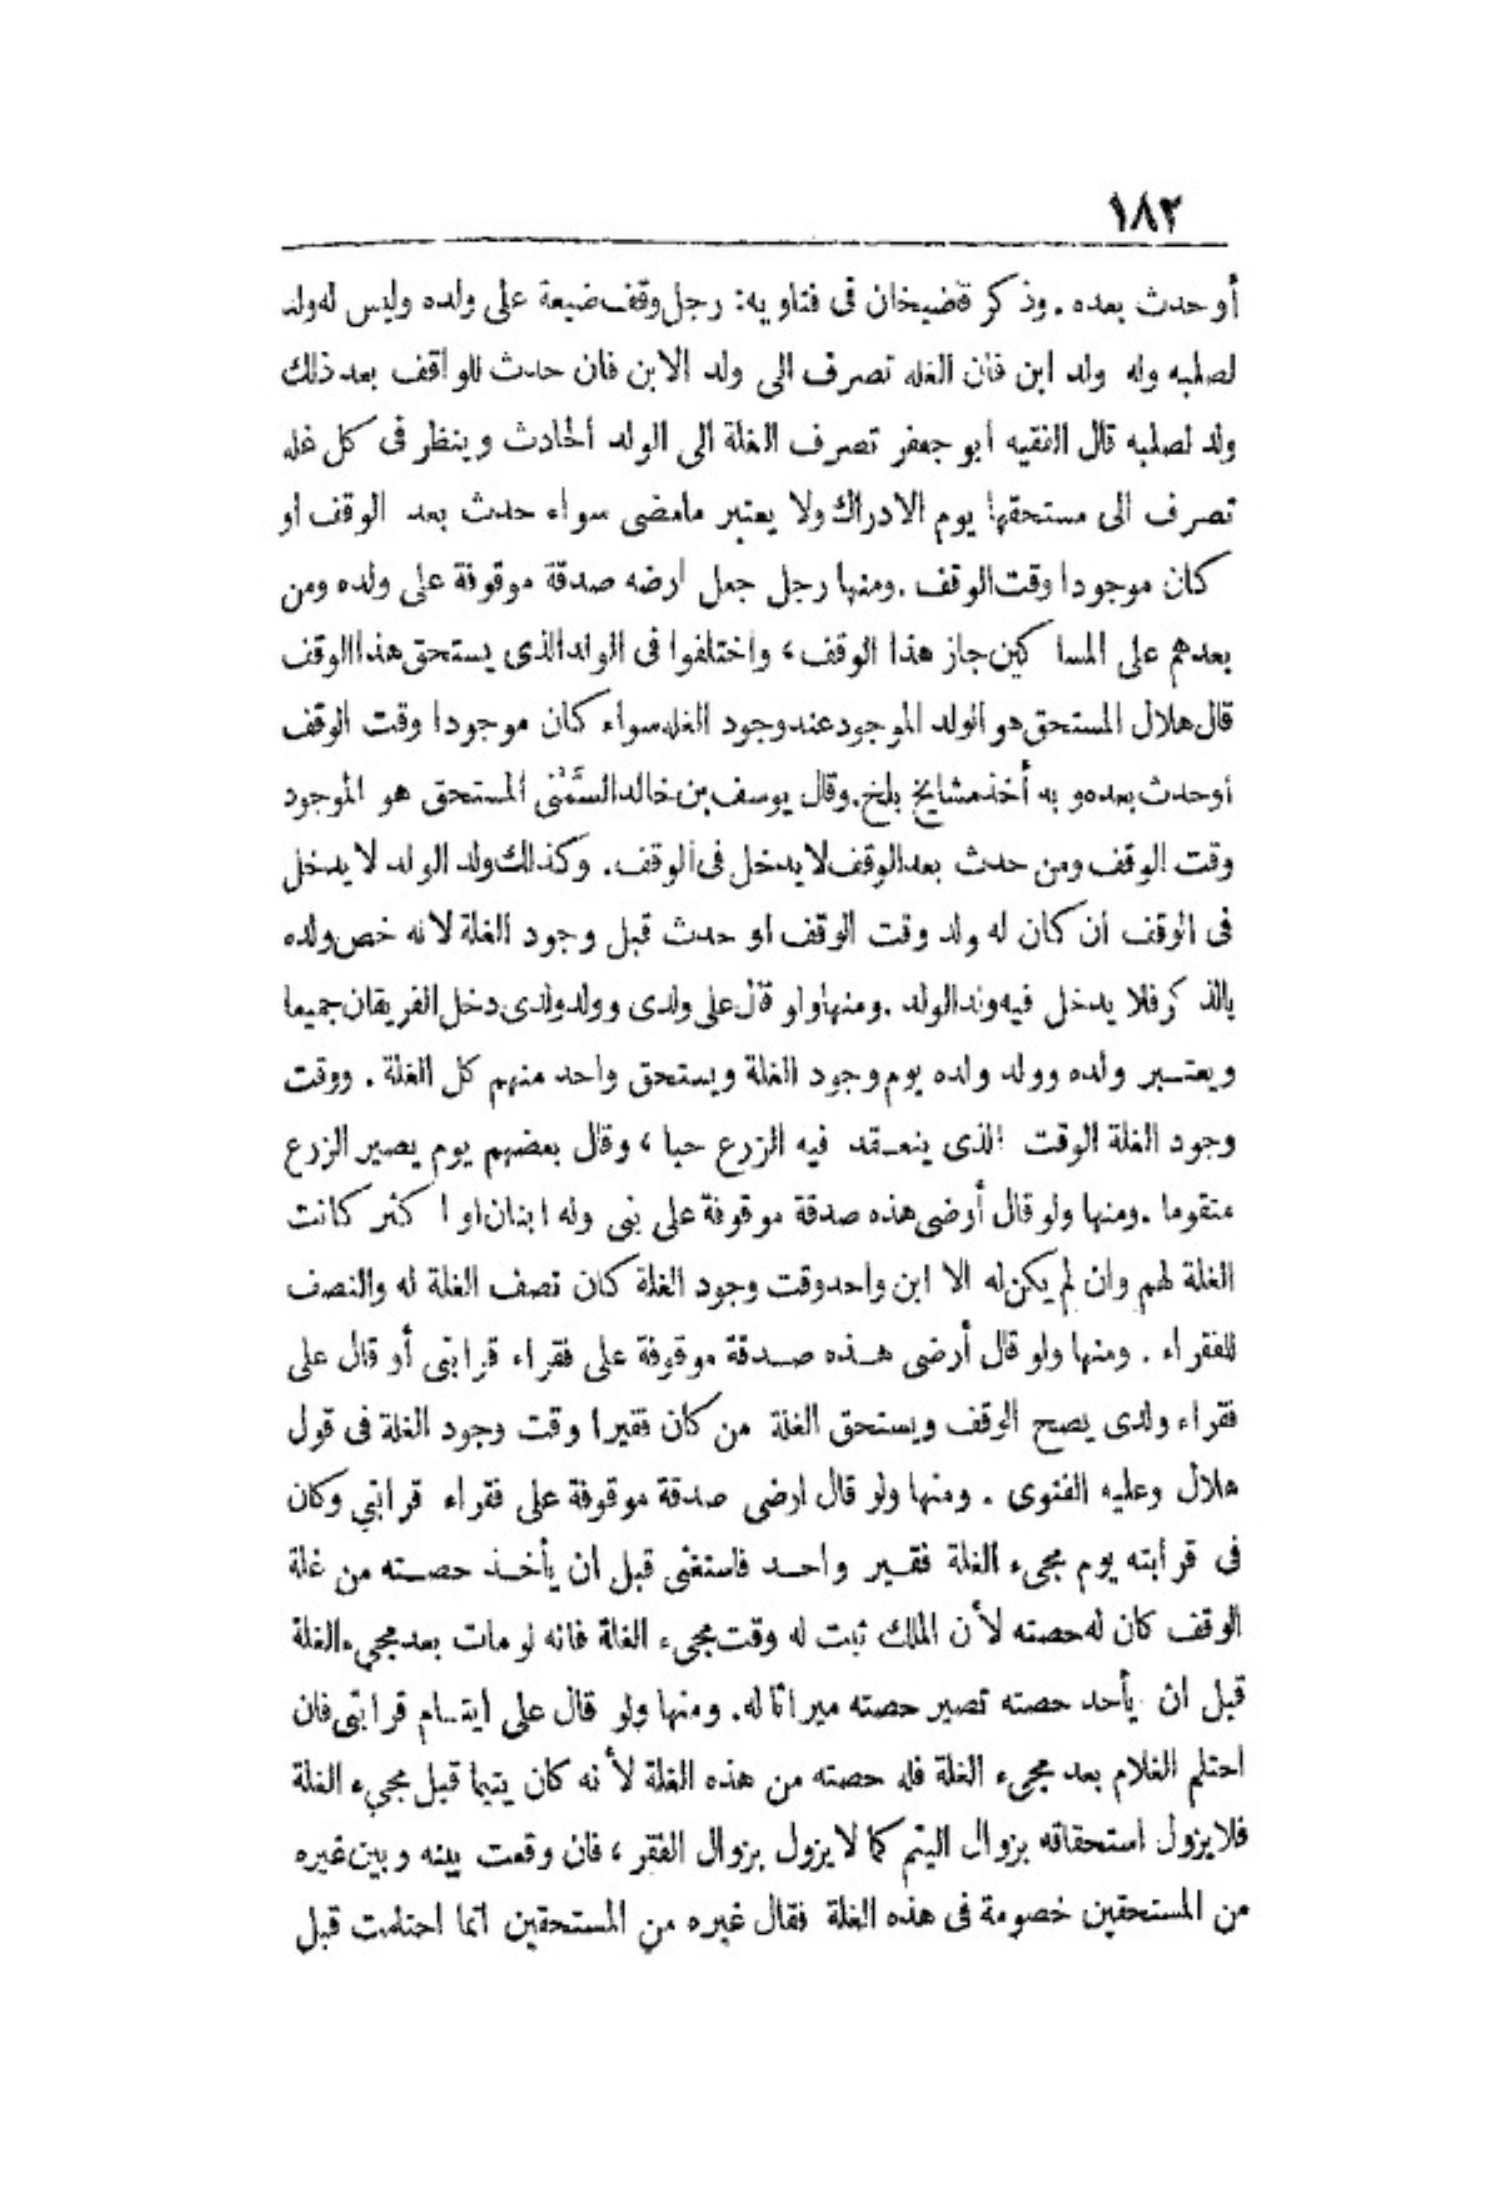 ١٨٢
أو حدث بعده . وذكر قاضيخان فى فتاويه: رجل وقف ضيعة على ولده وليس له ولد
لصلبه وله ولد ابن فان الغله تصرف الى ولد الابن فان حدث للواقف بعد ذلك
ولد لصلبه قال الفقيه ابو جعفر تصرف الغلة الى الولد الحادث وينظر فى كل غله
تصرف الى مستحقها يوم الادراك ولا يعتبر مامضى سواء حدث بعد الوقف او
كان موجودا وقت الوقف . ومنها رجل جعل ارضه صدقة موقوفة على ولده ومن
بعدهم على المساكين جاز هذا الوقف ، واختلفوا فى الولد الذى يستحق هذا الوقف
قال هلال المستحق هو الولد الموجود عند وجود الغله سواء كان موجودا وقت الوقف
أوحدث بعده و به أخذ مشايخ بلخ. وقال يوسف بن خالد السَّمْتى المستحق هو الموجود
وقت الوقف ومن حدث بعد الوقف لا يدخل فى الوقف . وكذلك ولد الولد لا يدخل
فى الوقف ان كان له ولد وقت الوقف او حدث قبل وجود الغلة لانه خص ولده
بالذكر فلا يدخل فيه ولد الولد . ومنها ولو قال على ولدى وولد ولدى دخل الفريقان جميعا
ويعتـبر ولده وولد ولده يوم وجود الغلة ويستحق واحد منهم كل الغلة . ووقت
وجود الغلة الوقت الذى ينعـقد فيه الزرع حبا ، وقال بعضهم يوم يصير الزرع
متقوما . ومنها ولو قال أرضى هذه صدقة موقوفة على بنى وله ابنان او اكثر كانت
الغلة لهم وان لم يكن له الا ابن واحد وقت وجود الغلة كان نصف الغلة له والنصف
للفقراء . ومنها ولو قال أرضى هـذه صـدقة موقوفة على فقراء قرابتى أو قال على
فقراء ولدى يصح الوقف ويستحق الغلة من كان فقيرا وقت وجود الغلة فى قول
هلال وعليه الفتوى . ومنها ولو قال ارضى صدقة موقوفة على فقراء قرابتي وكان
فى قرابته يوم مجىء الغلة فقـير واحـد فاستغنى قبل ان يأخـذ حصـته من غلة
الوقف كان له حصته لأن الملك ثبت له وقت مجىء الغلة فانه لو مات بعد مجىء الغلة
قبل ان يأحد حصته تصير حصته ميراثا له. ومنها ولو قال على ايتـام قرابتى فان
احتلم الغلام بعد مجىء الغلة فله حصته من هذه الغلة لأنه كان يتيما قبل مجيء الغلة
فلا يزول استحقاقه بزوال اليتم كما لا يزول بزوال الفقر ، فان وقعت بينه وبين غيره
من المستحقين خصومة فى هذه الغلة فقال غيره من المستحقين انما احتلمت قبل